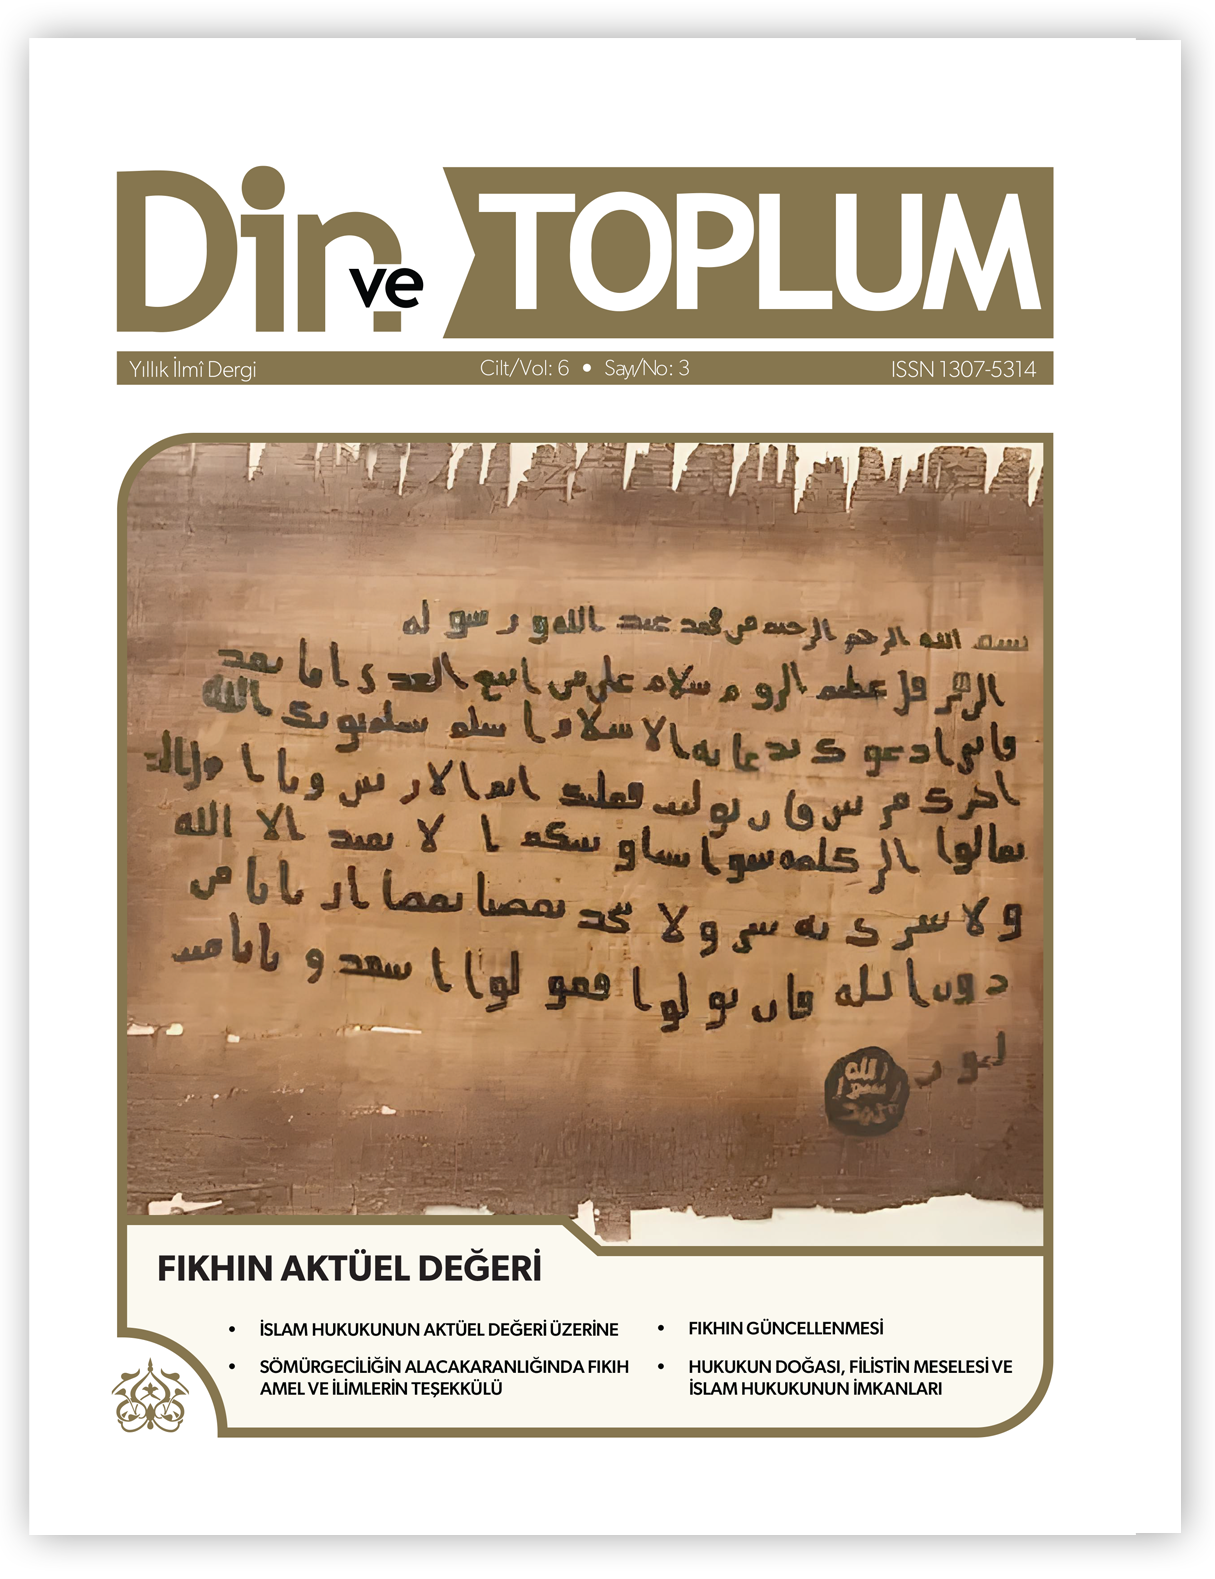 Din ve TOPLUM
Yıllık İlmî Dergi
Cilt/Vol: 6 • Sayı/No: 3
ISSN 1307-5314
بسم الله الرحمن الرحيم من محمد عبد الله و رسوله
عظيم الروم سلام على من اتبع الهدى اما بعد
فانى ادعوك بدعاية الاسلام اسلم تسلم يوتك الله
اجرك مرتين فان توليت فعليك اثم الاريسين ويا اهل
تعالوا الى كلمة سوا بيننا و بينكم ا لا نعبد الا الله
و لا نشرك به شى و لا يتخذ بعضنا بعضا اربابا من
دون الله فان تولوا فقولوا ا شهدو بانا مسلمون
الله
رسول
محمد
FIKHIN AKTÜEL DEĞERİ
• İSLAM HUKUKUNUN AKTÜEL DEĞERİ ÜZERİNE
• SÖMÜRGECİLİĞİN ALACAKARANLIĞINDA FIKIH
AMEL VE İLİMLERİN TEŞEKKÜLÜ
• FIKHIN GÜNCELLENMESİ
• HUKUKUN DOĞASI, FİLİSTİN MESELESİ VE
İSLAM HUKUKUNUN İMKANLARI